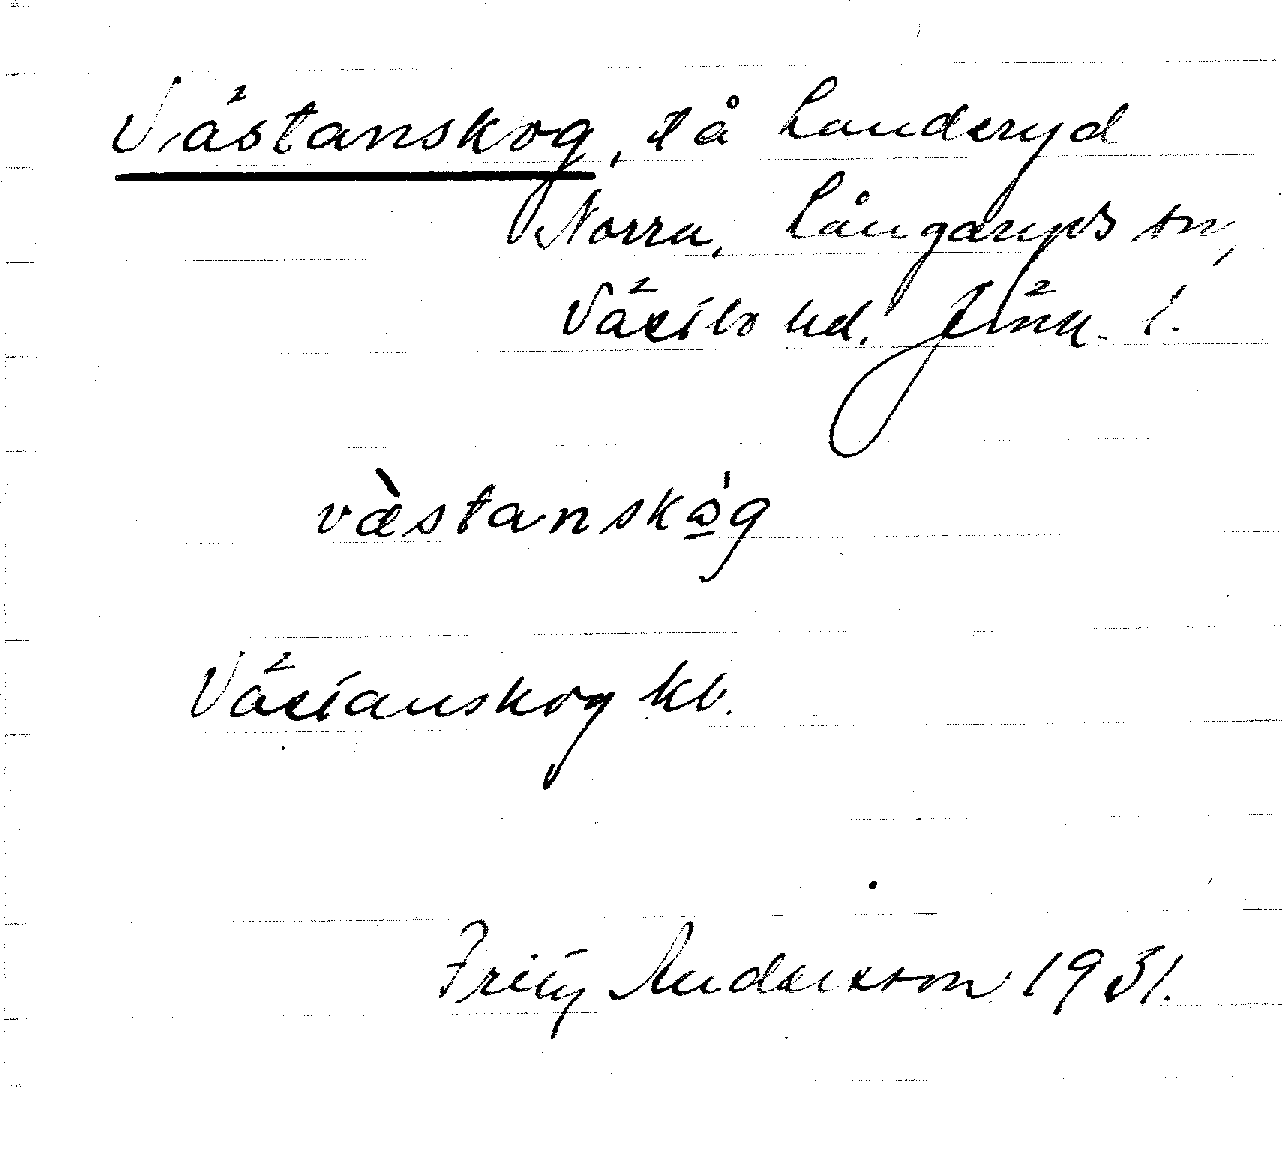 Västanskog, på Landeryd
Norra, Långaryds sn,
Västbo hd. Jönk. l.
västanskåg
Västanskog kb.
Fritz Andersson 1931.